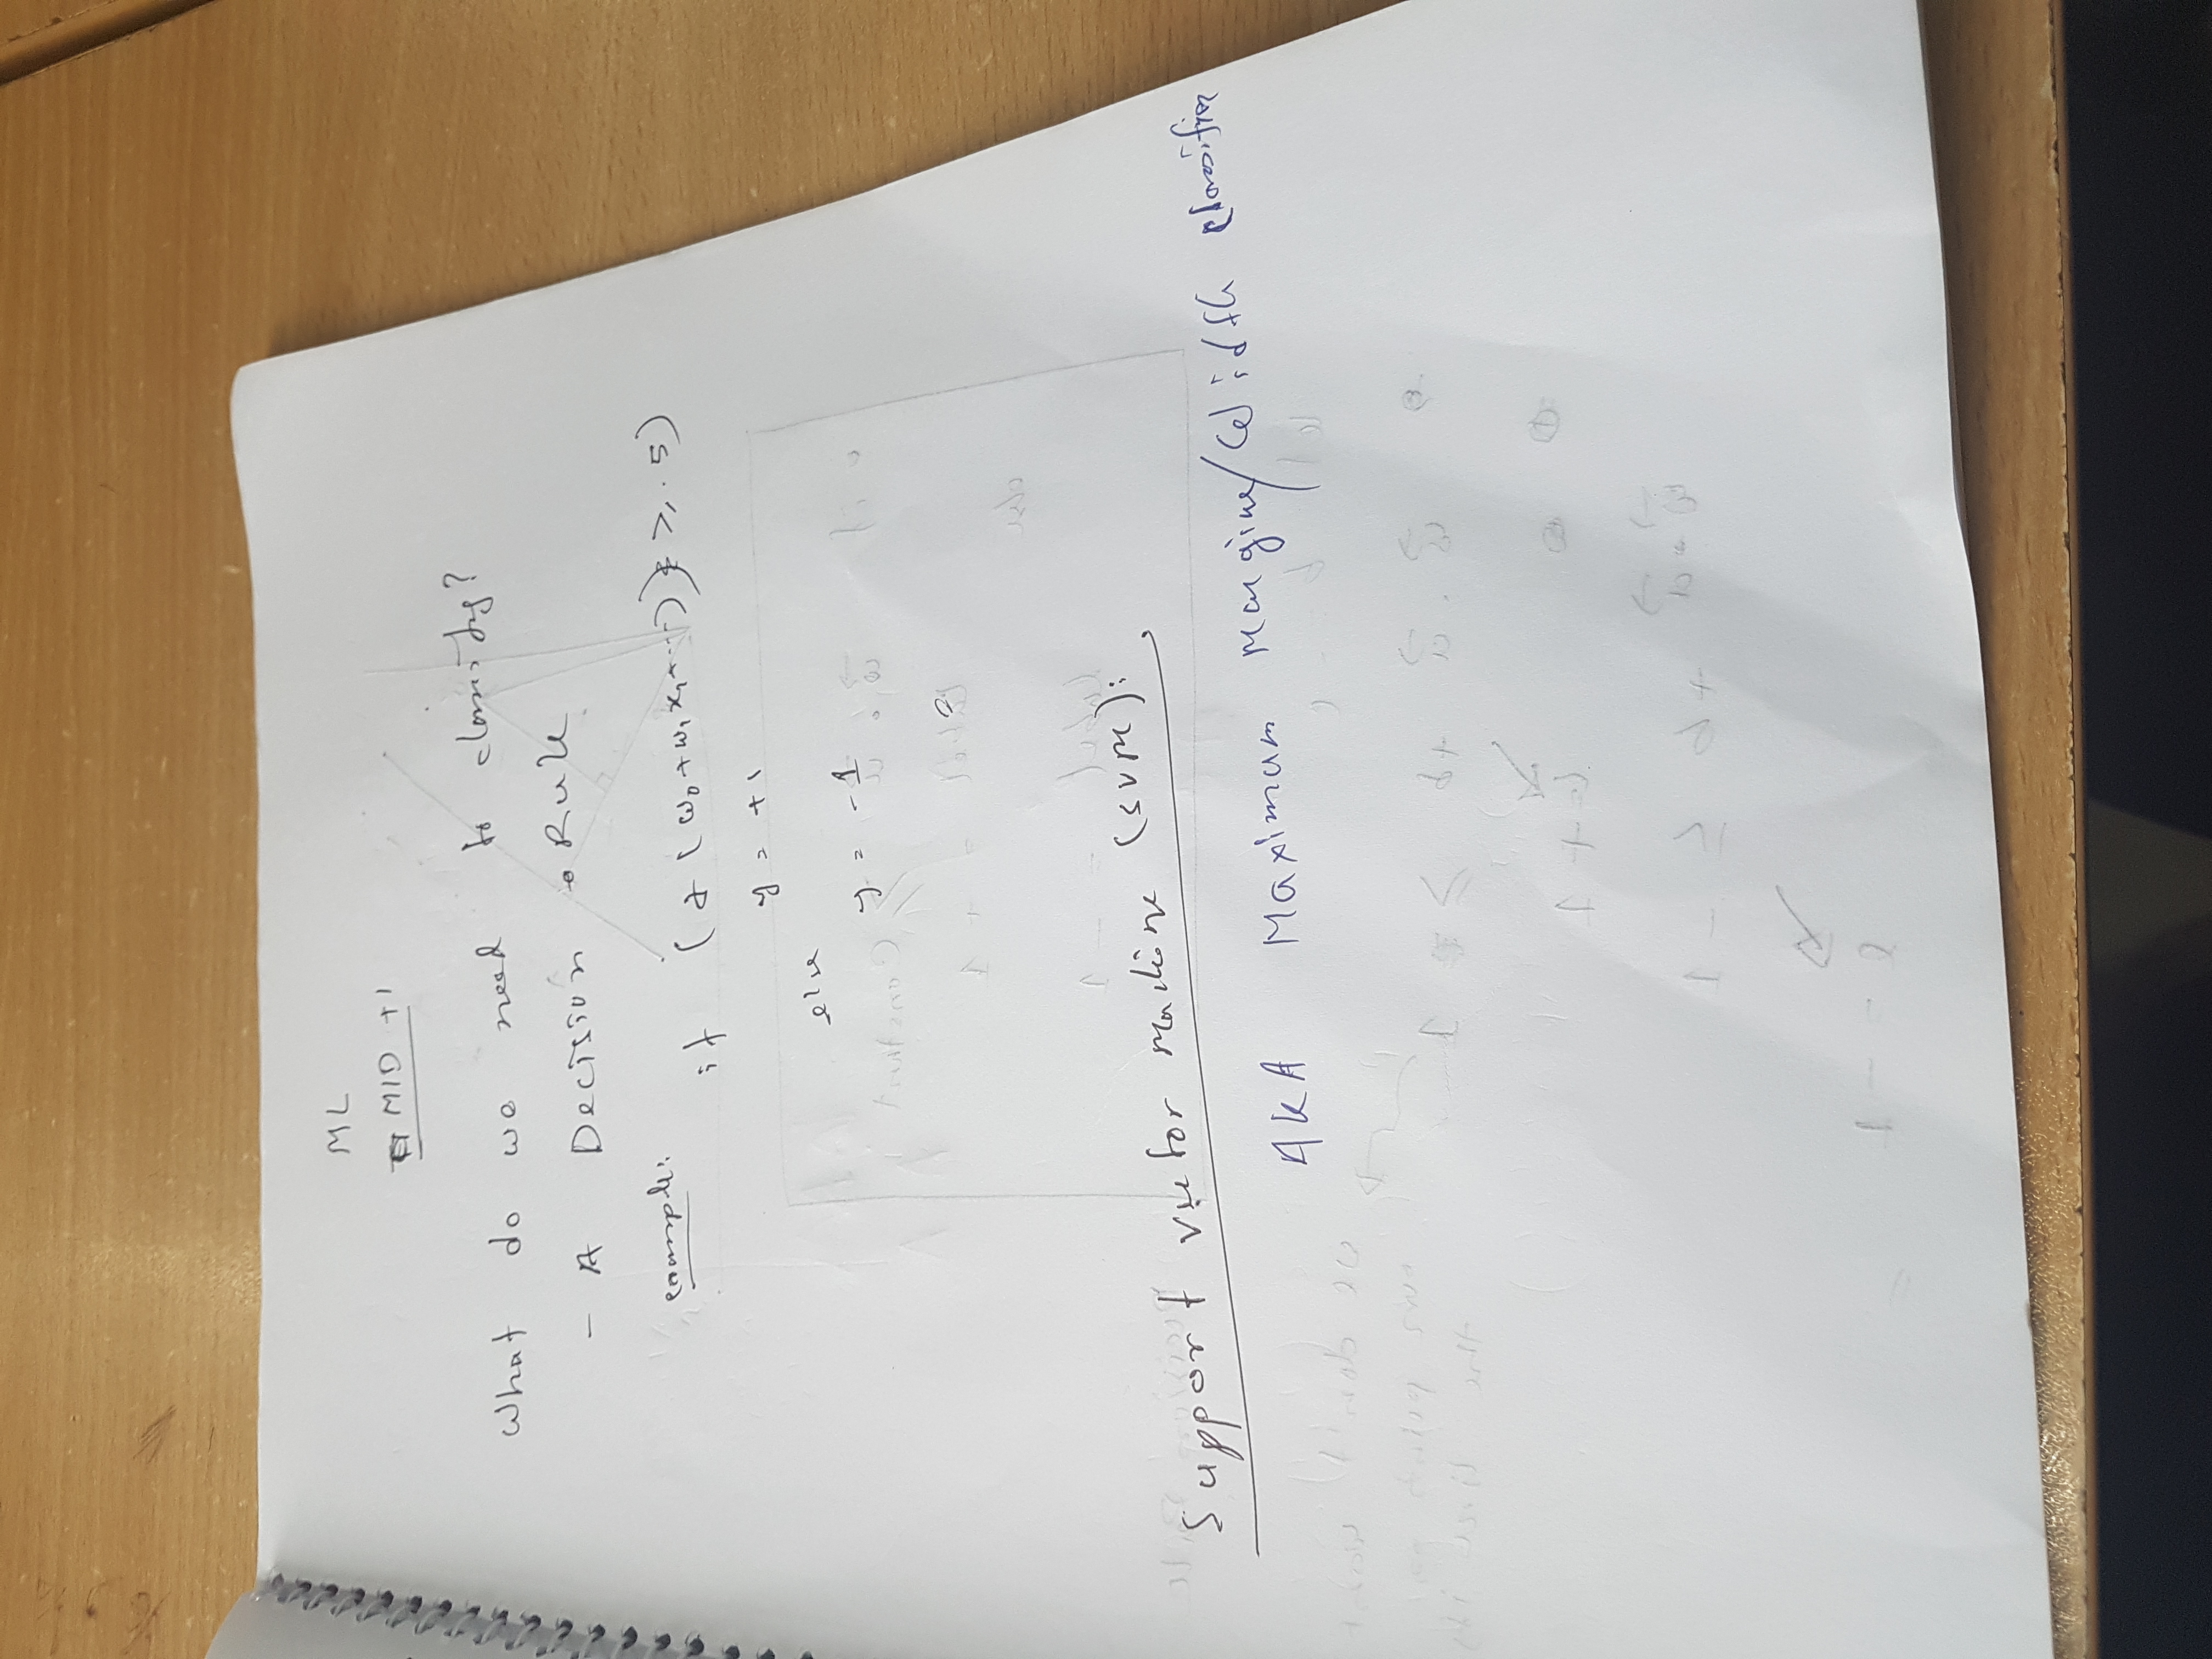 ML
MID +1
What do we need to classify?
- A Decision Rule
example:
if (f(w₀+w₁x₁+...)) ≥ .5)
y = +1
else
y = -1
Support vector Machine (SVM):
AKA Maximum Margine/Width classifier